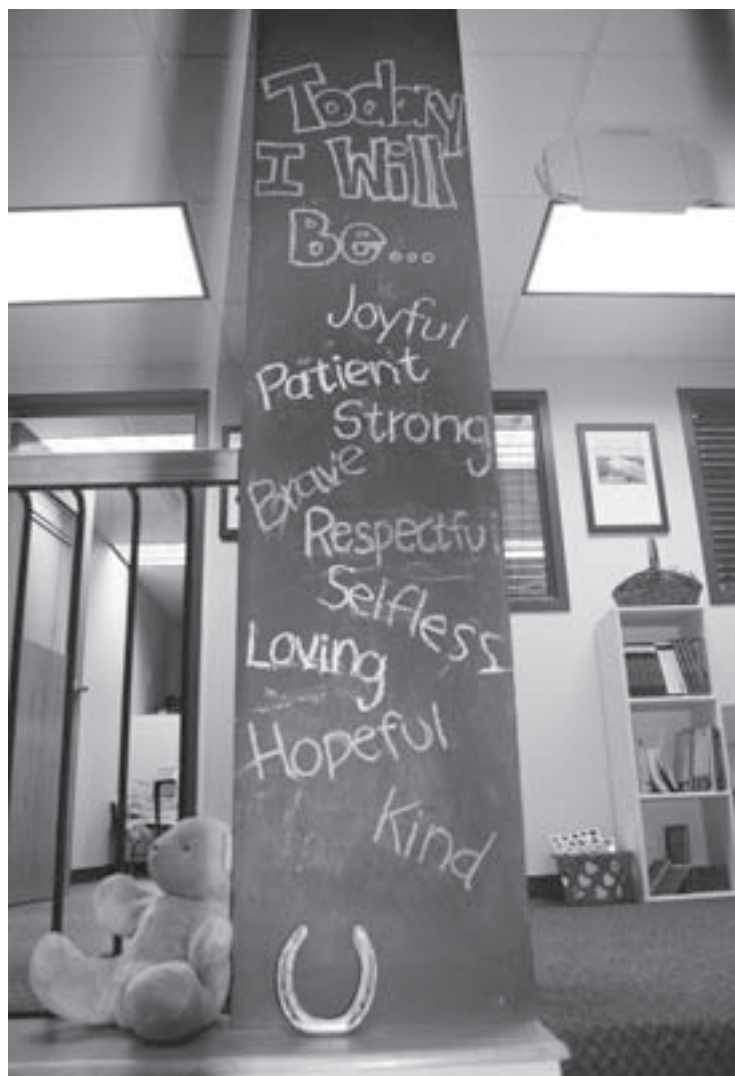 Today
I Will
Be...
Joyful
Patient
Strong
Brave
Respectful
Selfless
Loving
Hopeful
Kind